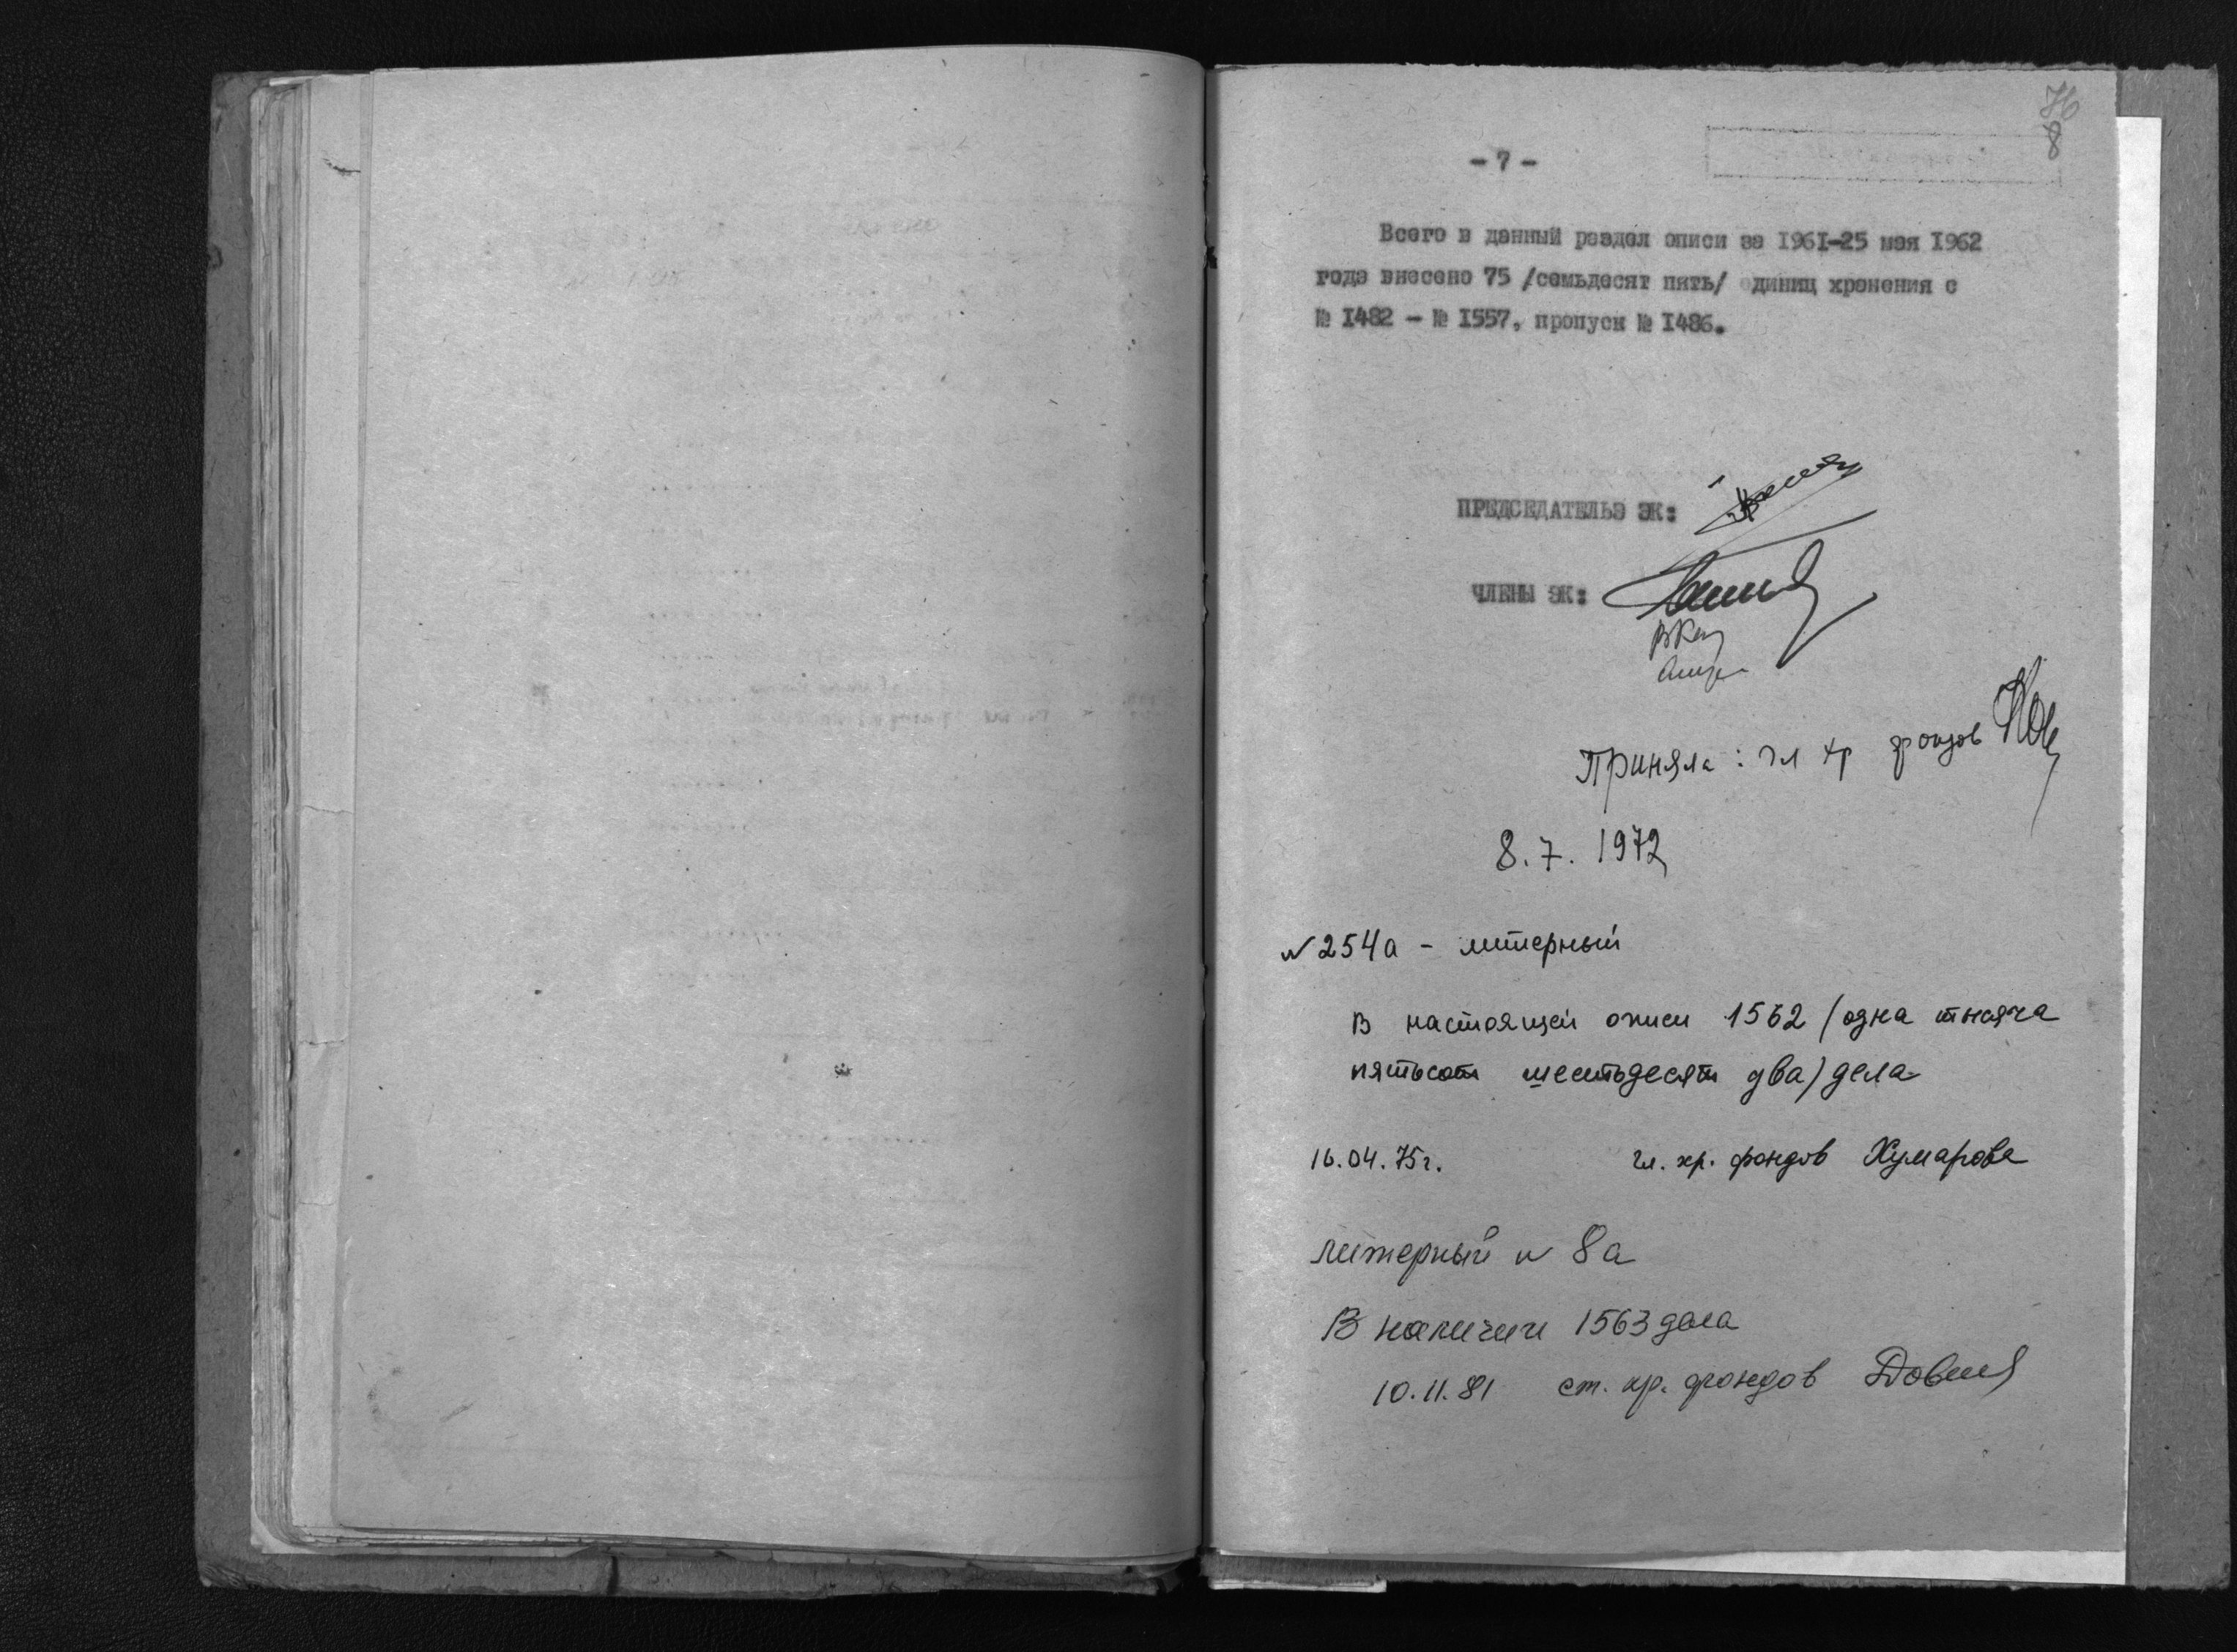 76
8
- 7 -
Всего в данный раздел описи за 1961-25 мая 1962
года внесено 75 /семьдесят пять/ единиц хранения с
№ 1482 - № 1557, пропуск № 1486.
ПРЕДСЕДАТЕЛЬ ЭК:
ЧЛЕНЫ ЭК:
Приняла: гл хр фондов
8.7.1972
№ 254а - литерный
В настоящей описи 1562 /одна тысяча
пятьсот шестьдесят два/ дела
16.04.75г. гл. хр. фондов Хумарова
литерный № 8а
В наличии 1563 дела
10.11.81 ст. хр. фондов